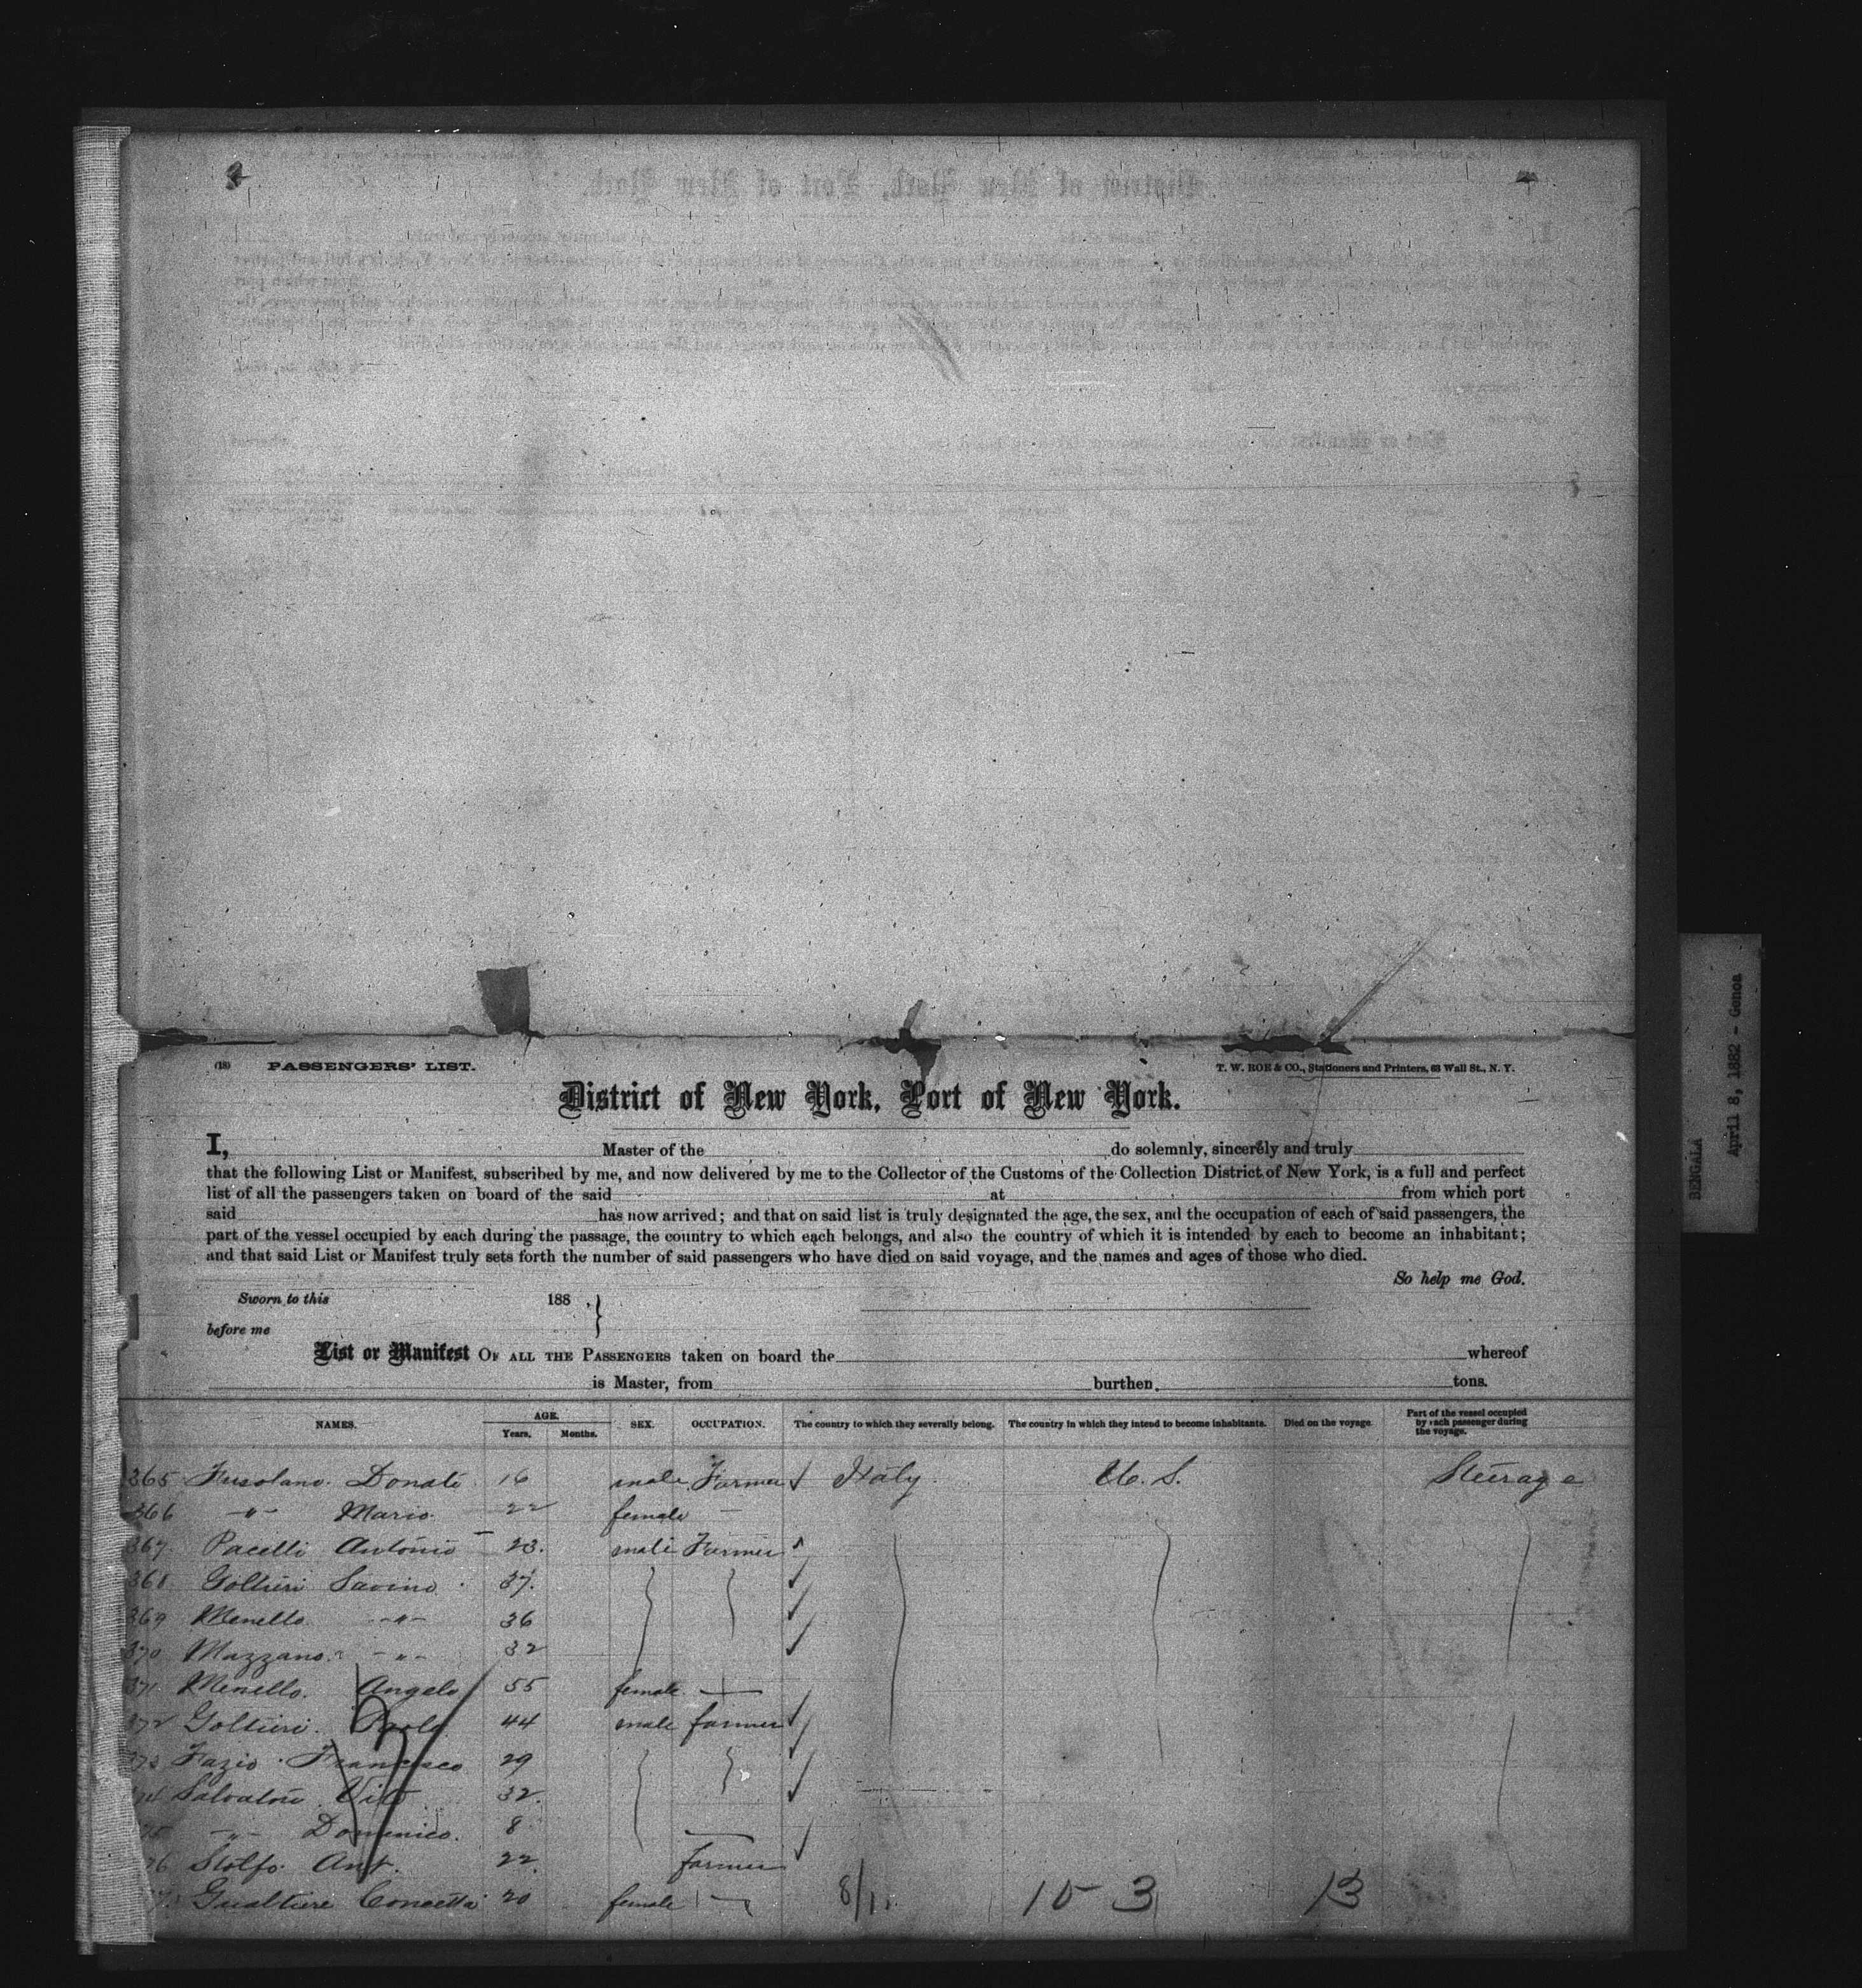 (18) PASSENGERS' LIST.
T. W. ROE & CO., Stationers and Printers, 63 Wall St., N. Y.
District of New York, Port of New York.
I, Master of the do solemnly, sincerely and truly
that the following List or Manifest, subscribed by me, and now delivered by me to the Collector of the Customs of the Collection District of New York, is a full and perfect
list of all the passengers taken on board of the said at from which port
said has now arrived; and that on said list is truly designated the age, the sex, and the occupation of each of said passengers, the
part of the vessel occupied by each during the passage, the country to which each belongs, and also the country of which it is intended by each to become an inhabitant;
and that said List or Manifest truly sets forth the number of said passengers who have died on said voyage, and the names and ages of those who died.
So help me God.
Sworn to this 188 ,
before me
List or Manifest OF ALL THE PASSENGERS taken on board the whereof
is Master, from burthen, tons.
NAMES. AGE. Years. Months. SEX. OCCUPATION. The country to which they severally belong. The country in which they intend to become inhabitants. Died on the voyage Part of the vessel occupied by each passenger during the voyage.
365 Donato 16 male Farmer Italy U. S. Steerage
366 -"- Maria 22 female —
367 Pacelli Antonio 23. male Farmer
368 Goltieri Savino 37.
369 Menello -"- 36
370 Mazzano -"- 32
371 Menello. Angelo 55 female —
372 Goltieri. Paolo 44 male farmer
373 Fazio Francesco 29
374 Salvatore Vito 32.
375 -"- Domenico. 8
376 Stolfo Ant. 22. farmer
377 Gualtiere Concetta 20 female —
8/11. 10 3 13
BENGALA
April 8, 1882 - Genoa